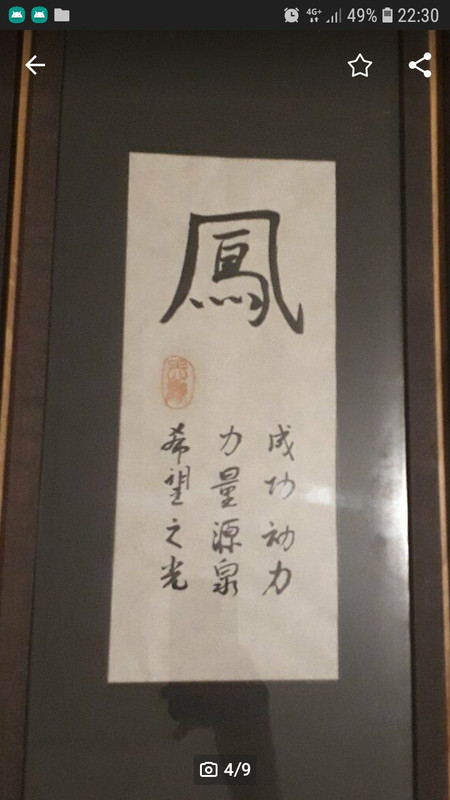 4G+ 49% 22:30
鳳
成功动力
力量源泉
希望之光
4/9